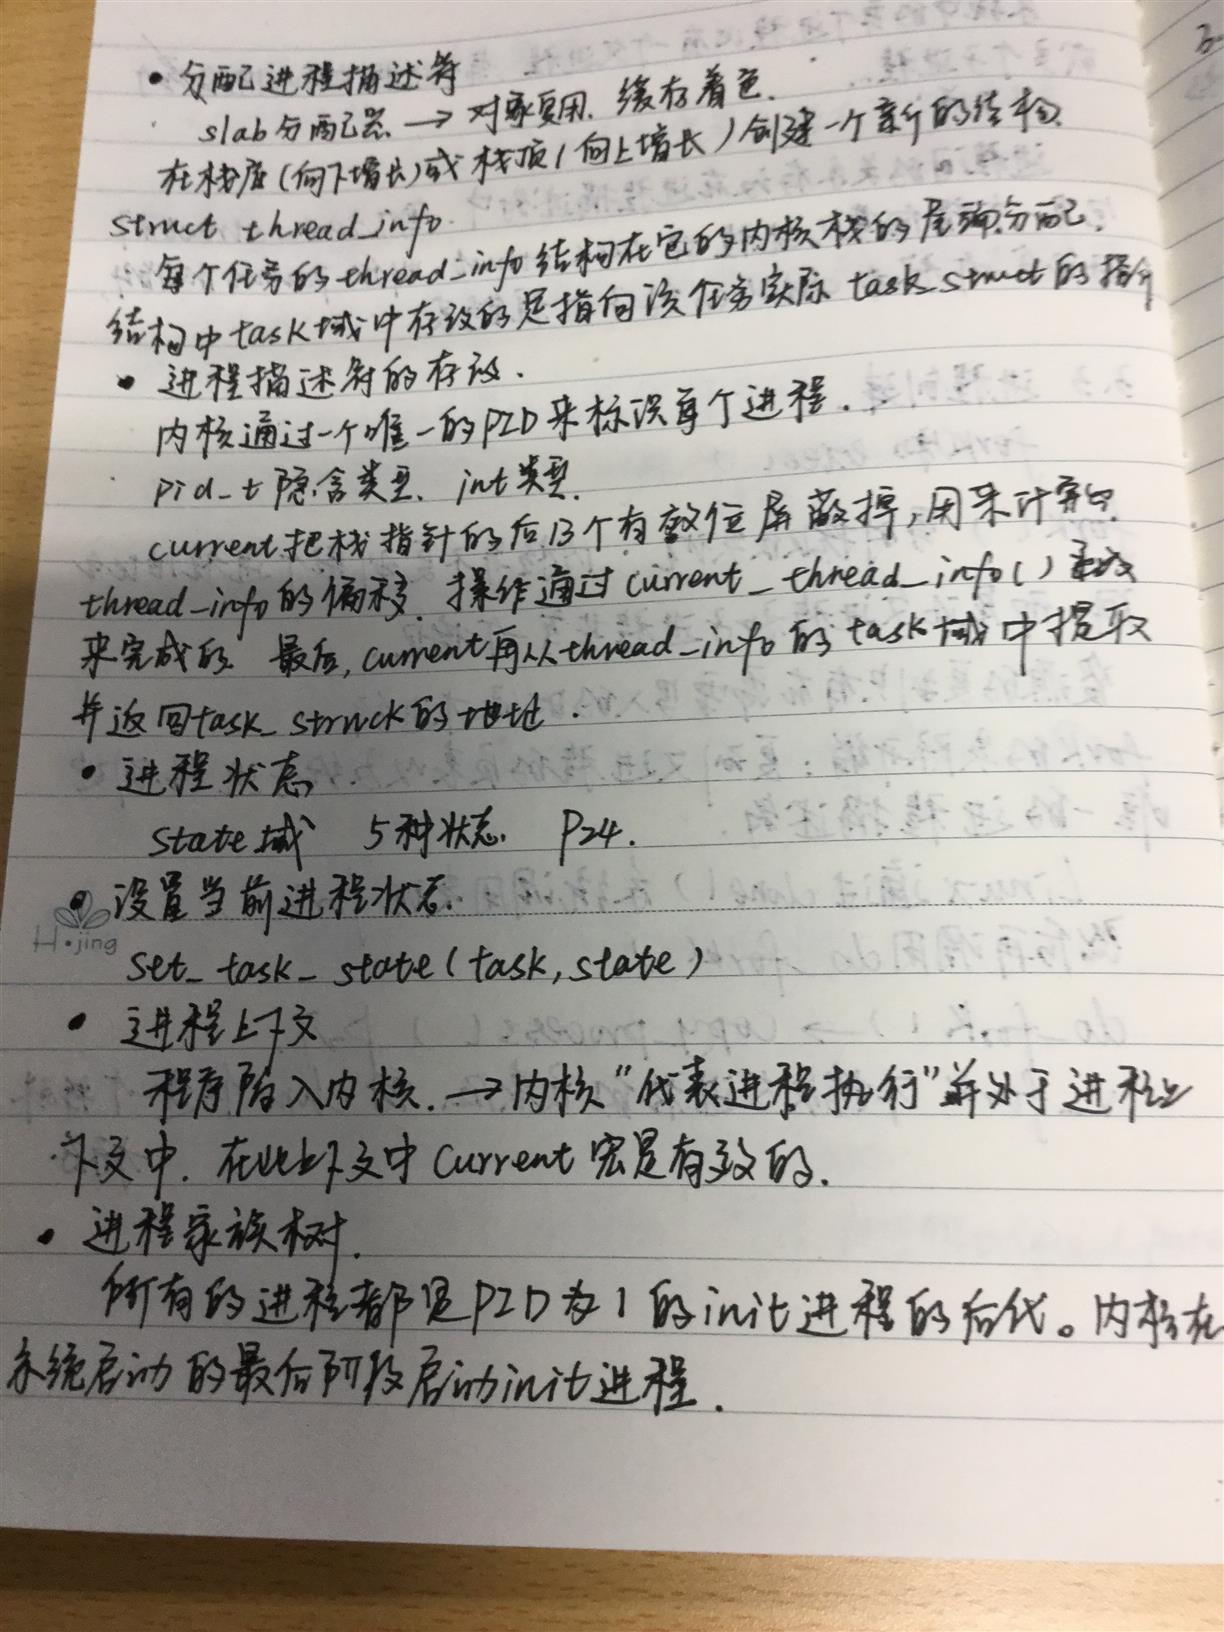 • 分配进程描述符
slab分配器 → 对象复用. 缓存着色.
在栈底(向下增长)或栈顶(向上增长)创建一个新的结构
struct thread_info.
每个任务的thread_info结构在它的内核栈的尾端分配.
结构中task域中存放的是指向该任务实际 task_struct的指针
• 进程描述符的存放.
内核通过一个唯一的PID来标识每个进程.
pid_t 隐含类型. int类型.
current把栈指针的后13个有效位屏蔽掉,用来计算出
thread_info的偏移. 操作通过current_thread_info()函数
来完成的. 最后,current再从thread_info的task域中提取
并返回task_struck的地址.
• 进程状态
state域 5种状态. P24.
• 设置当前进程状态.
H•jing
set_task_state(task,state)
• 进程上下文
程序陷入内核. → 内核“代表进程执行”并处于进程上
下文中. 在此上下文中current宏是有效的.
• 进程家族树.
所有的进程都是PID为1的init进程的后代。内核在
系统启动的最后阶段启动init进程.